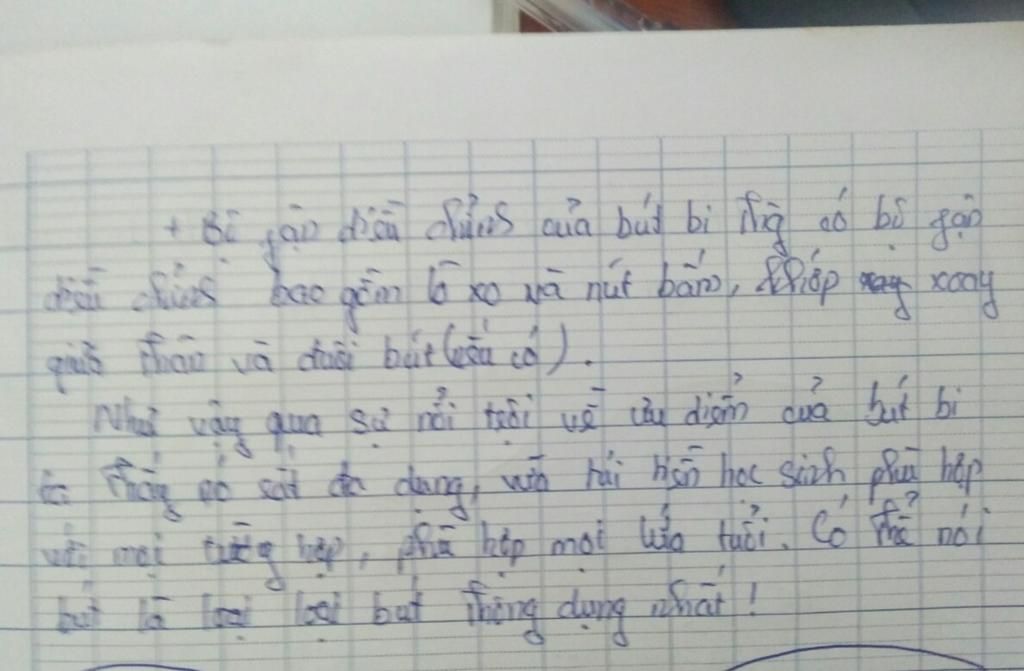 + Bộ phận điều chỉnh của bút bi thì có bộ phận
điều chỉnh bao gồm lò xo và nút bấm, khớp xoay
giữa thân và đuôi bút (nếu có).
Như vậy qua sự nổi trội về ưu điểm của bút bi
ta thấy nó rất đa dạng, vừa túi tiền học sinh phù hợp
với mọi trường hợp, phù hợp mọi lứa tuổi. Có thể nói
bút là loại loại bút thông dụng nhất!